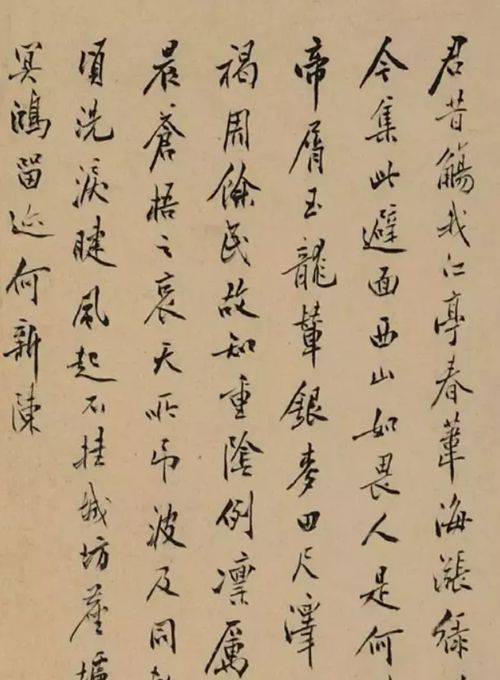 君昔觴我江亭春葦海漲綠
今集此避面西山如畏人是何
帝屑玉龍輦銀麥田尺澤
褐周餘民故知重陰例凜厲
晨蒼梧之哀天所弔波及同
頃洗淚睫風起不挂城坊塵
冥鴻留迹何新陳